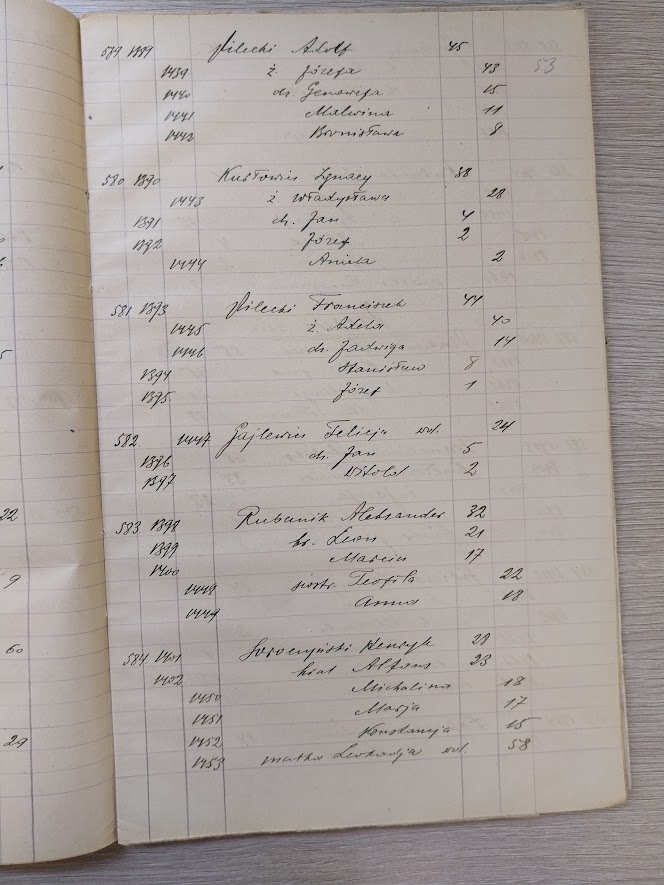 579 1389 Pilecki Adolf 45
53
1439 ż. Józefa 43
1440 dz. Genowefa 15
1441 Malwina 11
1442 Bronisława 8
580 1390 Ignacy 38
1443 ż. Władysława 28
1391 dz. Jan 4
1392 Józef 2
1444 Aniela 2
581 1393 Pilecki Franciszek 44
1445 ż. Adela 40
1446 dz. Jadwiga 14
1394 Stanisław 8
1395 Józef 1
582 1447 Gajlewicz Felicja wd. 24
1396 dz. Jan 5
1397 Witold 2
583 1398 Rubanik Aleksander 32
1399 br. Leon 21
1400 Marcin 17
1448 siostr. Teofila 22
1449 Anna 18
584 1401 Soroczyński Henryk 29
1402 brat Alfons 23
1450 Michalina 18
1451 Marja 17
1452 Konstancja 15
1453 matka Leokadja wd. 58
22
9
60
29